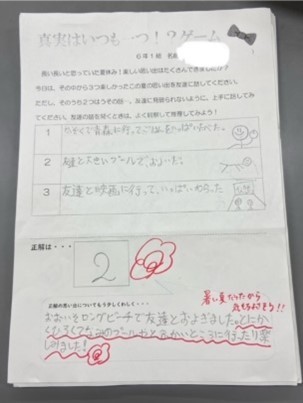 真実はいつも一つ!?ゲーム
6年1組 名前
長い長いと思っていた夏休み!楽しい思い出はたくさんできましたか?
今日は、その中から3つ楽しかったこの夏の思い出を友達に話してください。
ただし、そのうち2つはうその話…。友達に見破られないように、上手に話してみ
てください。友達の話を聞くときは、よく観察して推理してみよう!
1 かぞくで青森に行ってごはんをいっぱいたべた。
2 姉と大きいプールでおよいだ。
3 友達と映画に行って、いっぱいわらった
正解は・・・
2
暑い夏だったから
気もちよさそう!!
正解の思い出についてもう少しくわしく・・・
おおいそロングビーチで友達とおよぎました。とにか
くひろくてなみのプールやとるかいところに行ったり楽
しみました!